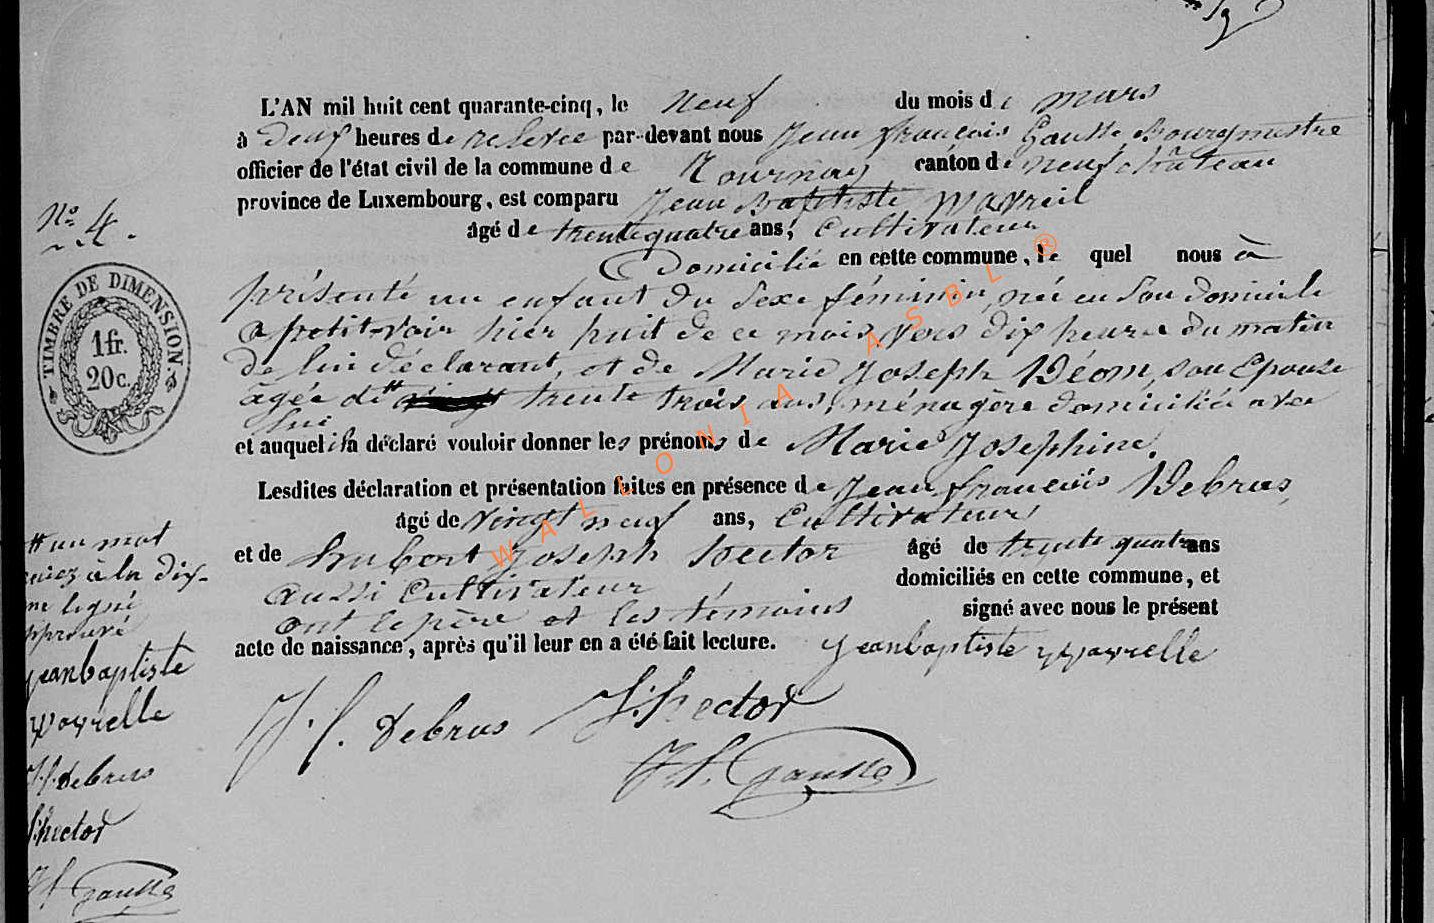 L'AN mil huit cent quarante-cinq, le neuf du mois de mars
à deux heures de relevée par-devant nous Jean françois Gausse, Bourgmestre
officier de l'état civil de la commune de Tournay canton de neufchâteau
province de Luxembourg, est comparu Jean Baptiste Wavreil
âgé de trente quatre ans, Cultivateur
Domicilié en cette commune, le quel nous à
présenté un enfant du sexe féminin, née en son domicile
a petit-voir hier huit de ce mois, vers dix heures du matin
de lui déclarant, et de Marie Joseph Déom, son Epouse
âgée de # trente trois ans, ménagère domiciliée avec
lui
et auquel il a déclaré vouloir donner les prénoms de Marie Josephine.
Lesdites déclaration et présentation faites en présence de Jean françois Debras
âgé de vingt neuf ans, Cultivateur,
et de hubert Joseph hector âgé de trente quatre ans
aussi Cultivateur domiciliés en cette commune, et
ont le père et les témoins signé avec nous le présent
acte de naissance, après qu'il leur en a été fait lecture. Jeanbaptiste Wavrelle
J. f. Debras h: hector
J f. Gausse
N° 4
TIMBRE DE DIMENSION.
1 fr.
20 c.
# un mot
à la dix-
me ligne
approuvé
jeanbaptiste
Wavrelle
J. f. Debras
h: hector
J f Gausse
WALLONIA ASBL ®